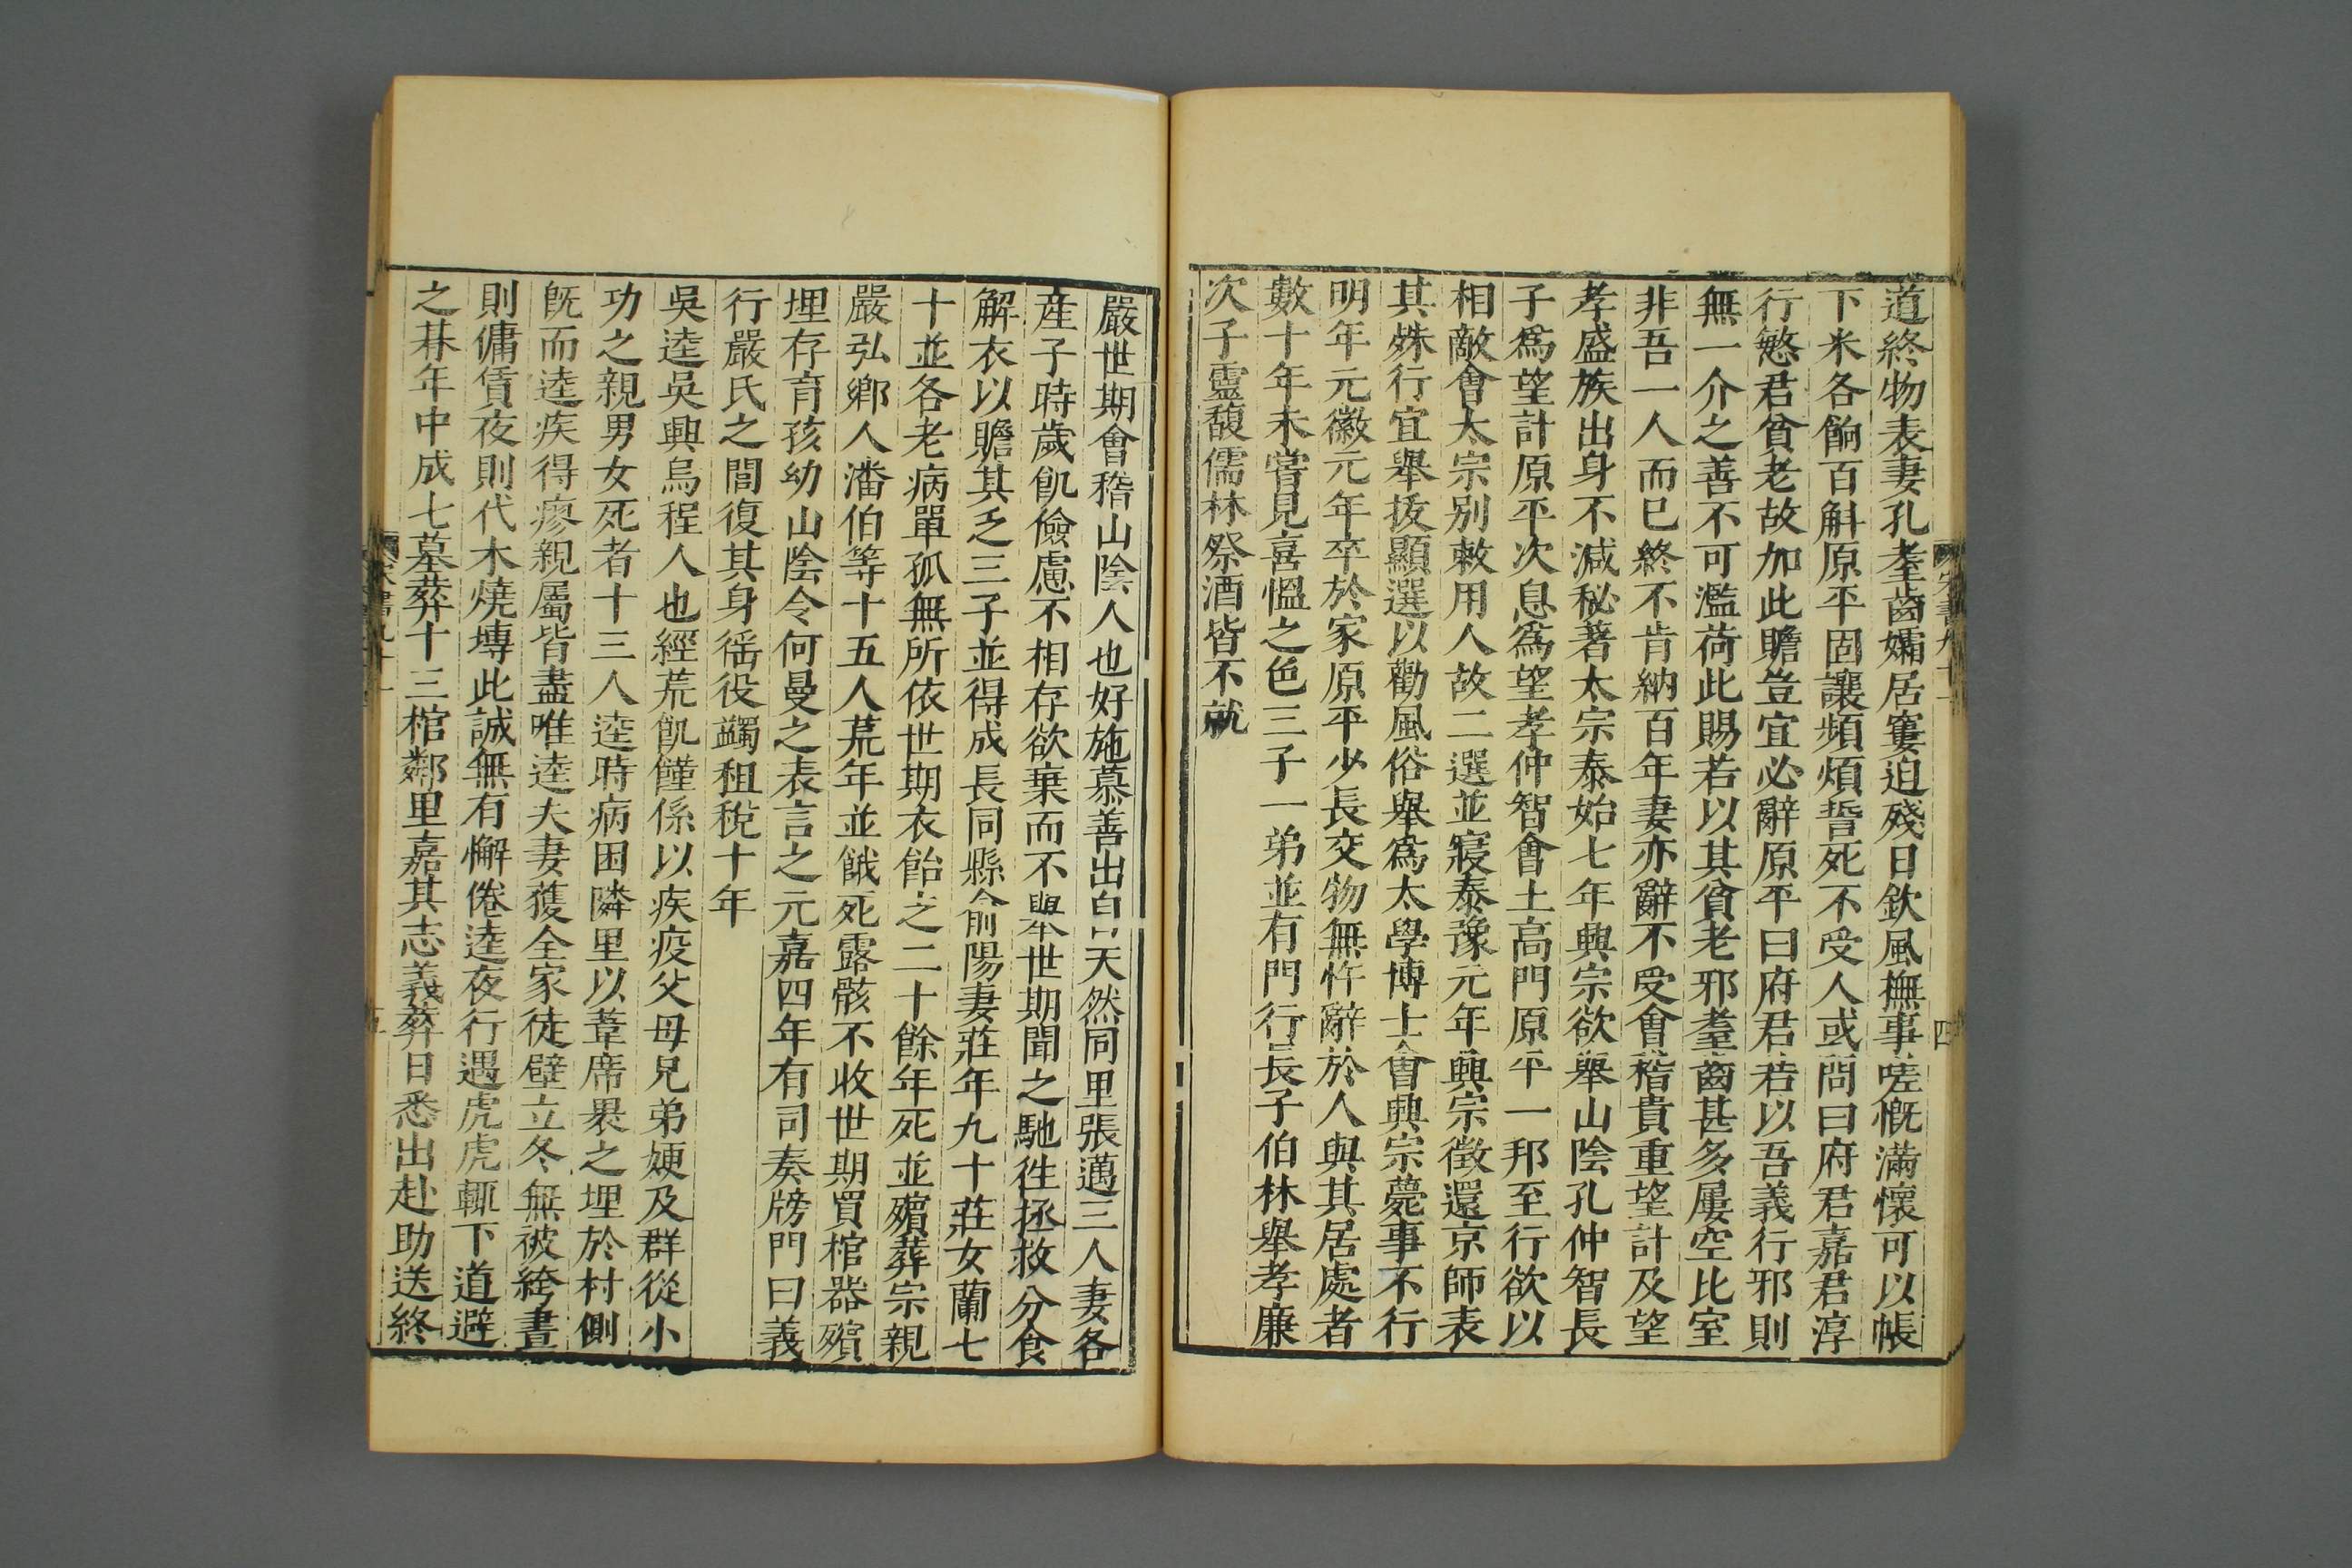 道終物表妻孔耋齒孀居窶迫殘日欽風撫事嗟慨滿懷可以帳
下米各餉百斛原平固讓頻煩誓死不受人或問曰府君嘉君淳
行愍君貧老故加此贍豈宜必辭原平曰府君若以吾義行邪則
無一介之善不可濫荷此賜若以其貧老邪耋齒甚多屢空比室
非吾一人而已終不肯納百年妻亦辭不受會稽貴重望計及望
孝盛族出身不減秘著太宗泰始七年興宗欲舉山陰孔仲智長
子爲望計原平次息爲望孝仲智會土高門原平一邦至行欲以
相敵會太宗別敕用人故二選並寢泰豫元年興宗徵還京師表
其殊行宜舉拔顯選以勸風俗舉爲太學博士會興宗薨事不行
明年元徽元年卒於家原平少長交物無忤辭於人與其居處者
數十年未嘗見喜慍之色三子一弟並有門行長子伯林舉孝廉
次子靈馥儒林祭酒皆不就
宋書九十一
四
嚴世期會稽山陰人也好施慕善出自天然同里張邁三人妻各
産子時歲飢儉慮不相存欲棄而不舉世期聞之馳往拯救分食
解衣以贍其乏三子並得成長同縣俞陽妻莊年九十莊女蘭七
十並各老病單孤無所依世期衣飴之二十餘年死並殯葬宗親
嚴弘鄉人潘伯等十五人荒年並餓死露骸不收世期買棺器殯
埋存育孩幼山陰令何曼之表言之元嘉四年有司奏牓門曰義
行嚴氏之閭復其身徭役蠲租稅十年
吳逵吳興烏程人也經荒飢饉係以疾疫父母兄弟㛐及群從小
功之親男女死者十三人逵時病困隣里以葦席裹之埋於村側
旣而逵疾得瘳親屬皆盡唯逵夫妻獲全家徒壁立冬無被絝晝
則傭賃夜則代木燒塼此誠無有懈倦逵夜行遇虎虎輒下道避
之朞年中成七墓葬十三棺鄰里嘉其志義葬日悉出赴助送終